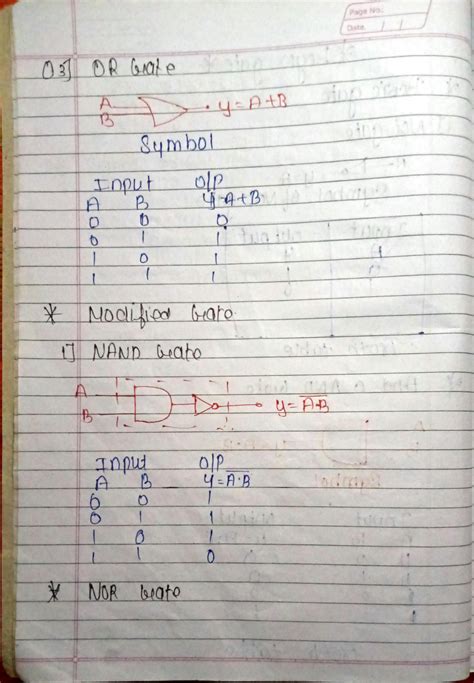 Page No.:
Date / /
03] OR Gate
A
B
y = A+B
Symbol
Input O/P
A B y=A+B
0 0 0
0 1 1
1 0 1
1 1 1
* Modified Gate
1] NAND Gate
A
B
y = \overline{A·B}
Input O/P
A B y=\overline{A·B}
0 0 1
0 1 1
1 0 1
1 1 0
* NOR Gate